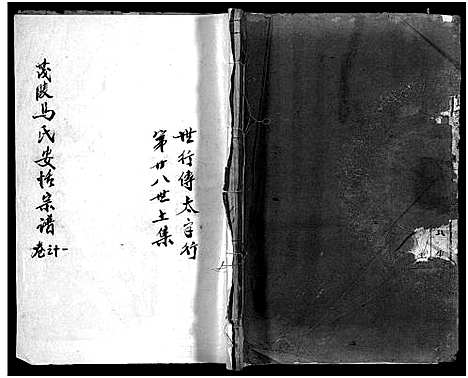 世行傳太字行
第廿八世上集
茂陵馬氏安恬宗谱
卷之十一